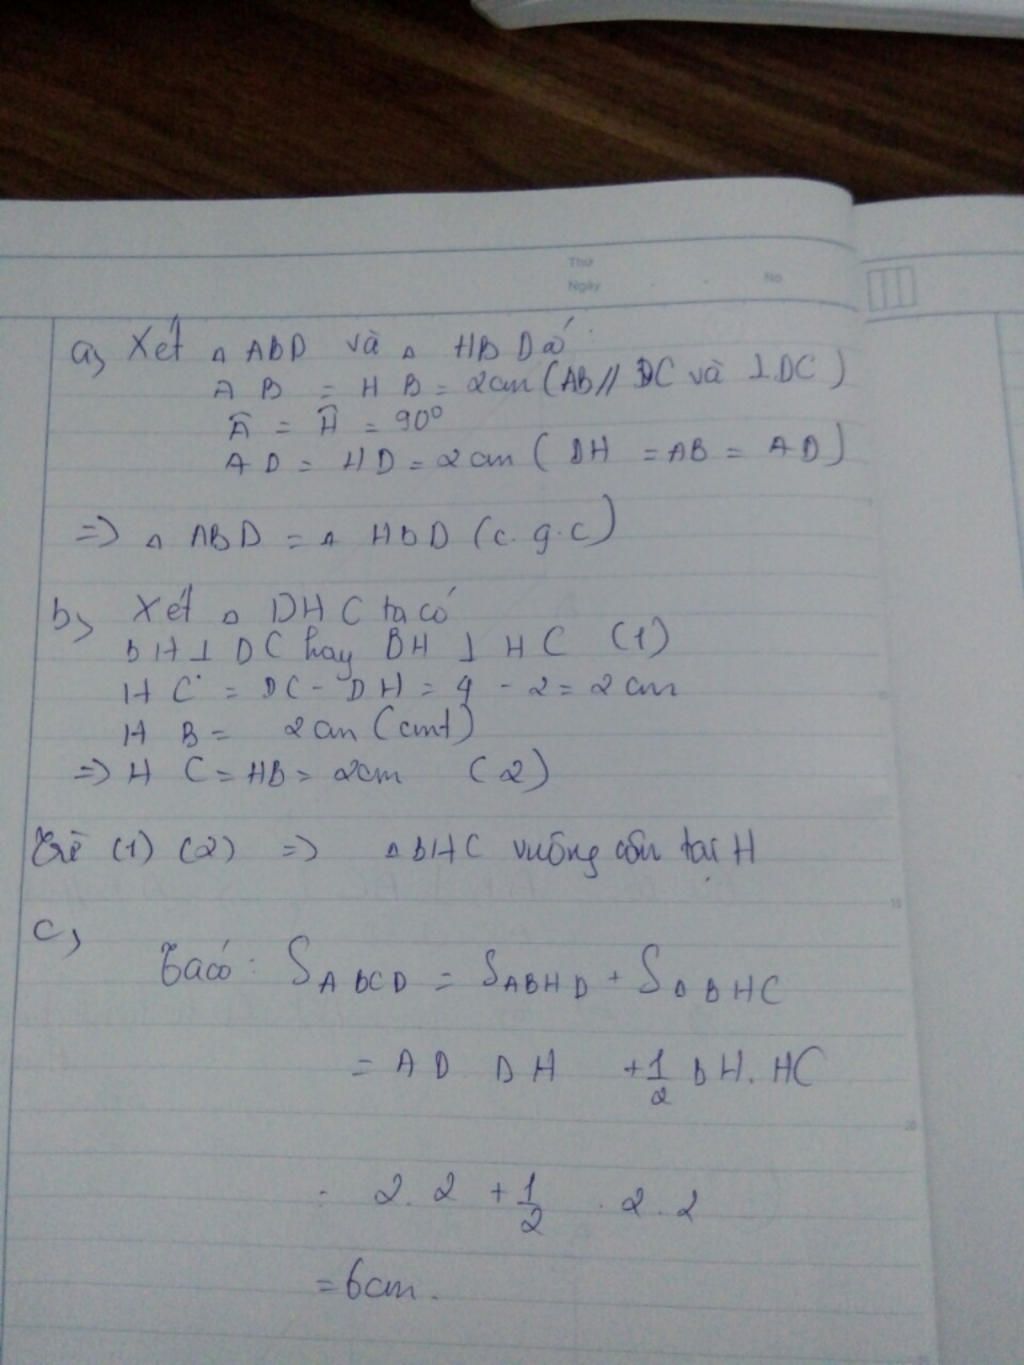 Thứ
Ngày
No
a, Xét △ ABD và △ HBD có:
AB = HB = 2cm (AB // DC và ⊥ DC)
Â = Ĥ = 90°
AD = HD = 2cm (DH = AB = AD)
=> △ ABD = △ HBD (c.g.c)
b, Xét △ DHC ta có
BH ⊥ DC hay BH ⊥ HC (1)
HC = DC - DH = 4 - 2 = 2cm
HB = 2cm (cmt)
=> HC = HB = 2cm (2)
Từ (1) (2) => △ BHC vuông cân tại H
c,
Ta có: S ABCD = S ABHD + S △ BHC
= AD DH + 1/2 BH. HC
2. 2 + 1/2 . 2. 2
= 6cm.
15
20